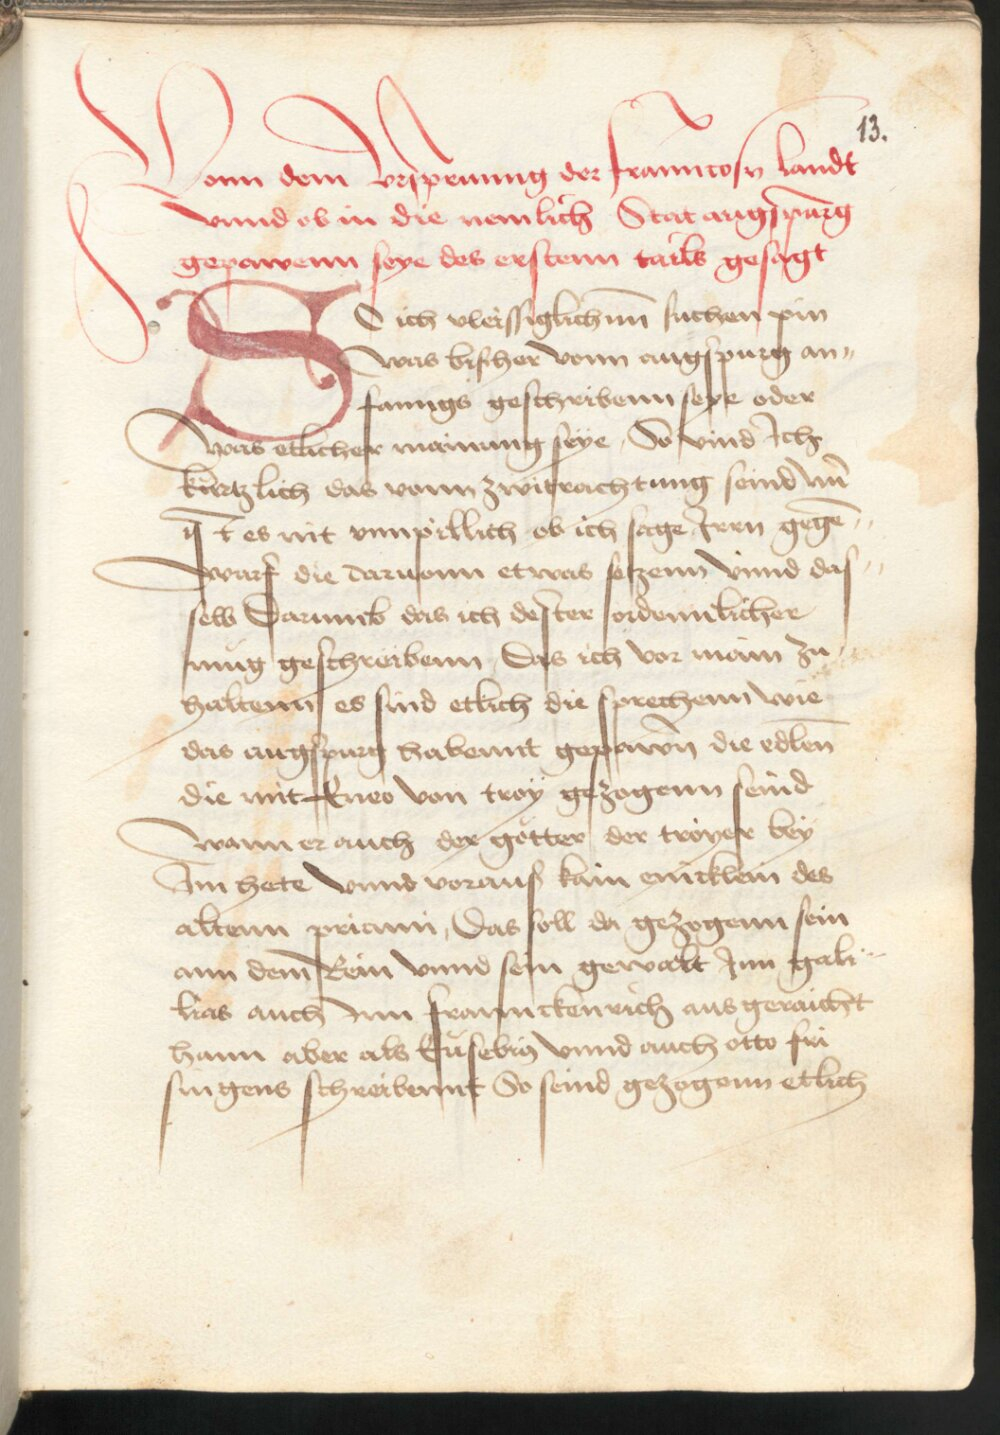 13.
Vonn dem Vrsprunng der franntzosn landt
vnnd ob in die nemlich Stat augspurg
gepawenn seye des erstenn tails gesagt
SO ich vleissiglich nun suchen pin
was bisher vonn augspurg an„
fanngs geschribenn seye oder
was etlicher mainung seye, So vind Ich
kurtzlich das vonn zwitrachtung seind vn̄
ist es nit vnnpillich ob ich sage Irrn gegē„
warf die daruonn etwas setzenn vnnd das„
selb Darumb das ich dester ordennlicher
mug geschreibenn, Das ich vor main zu„
haltenn es sind etlich die sprechenn wie
das augspurg habennt gepawn̄ die edlen̄
die mit Eneo von troy gezogenn seind
wann er auch der götter der troyer bey
Im hete vnnd voraus kain enicklein des
altenn priami, Das soll da gezogenn sein
ann dem Rein vnnd sein gewalt Inn gali„
lias auch Inn frannckenrich ausgeraicht
hann aber als Eusebiꝰ vnnd auch otto fri
singens schreibennt So seind gezogenn etlich